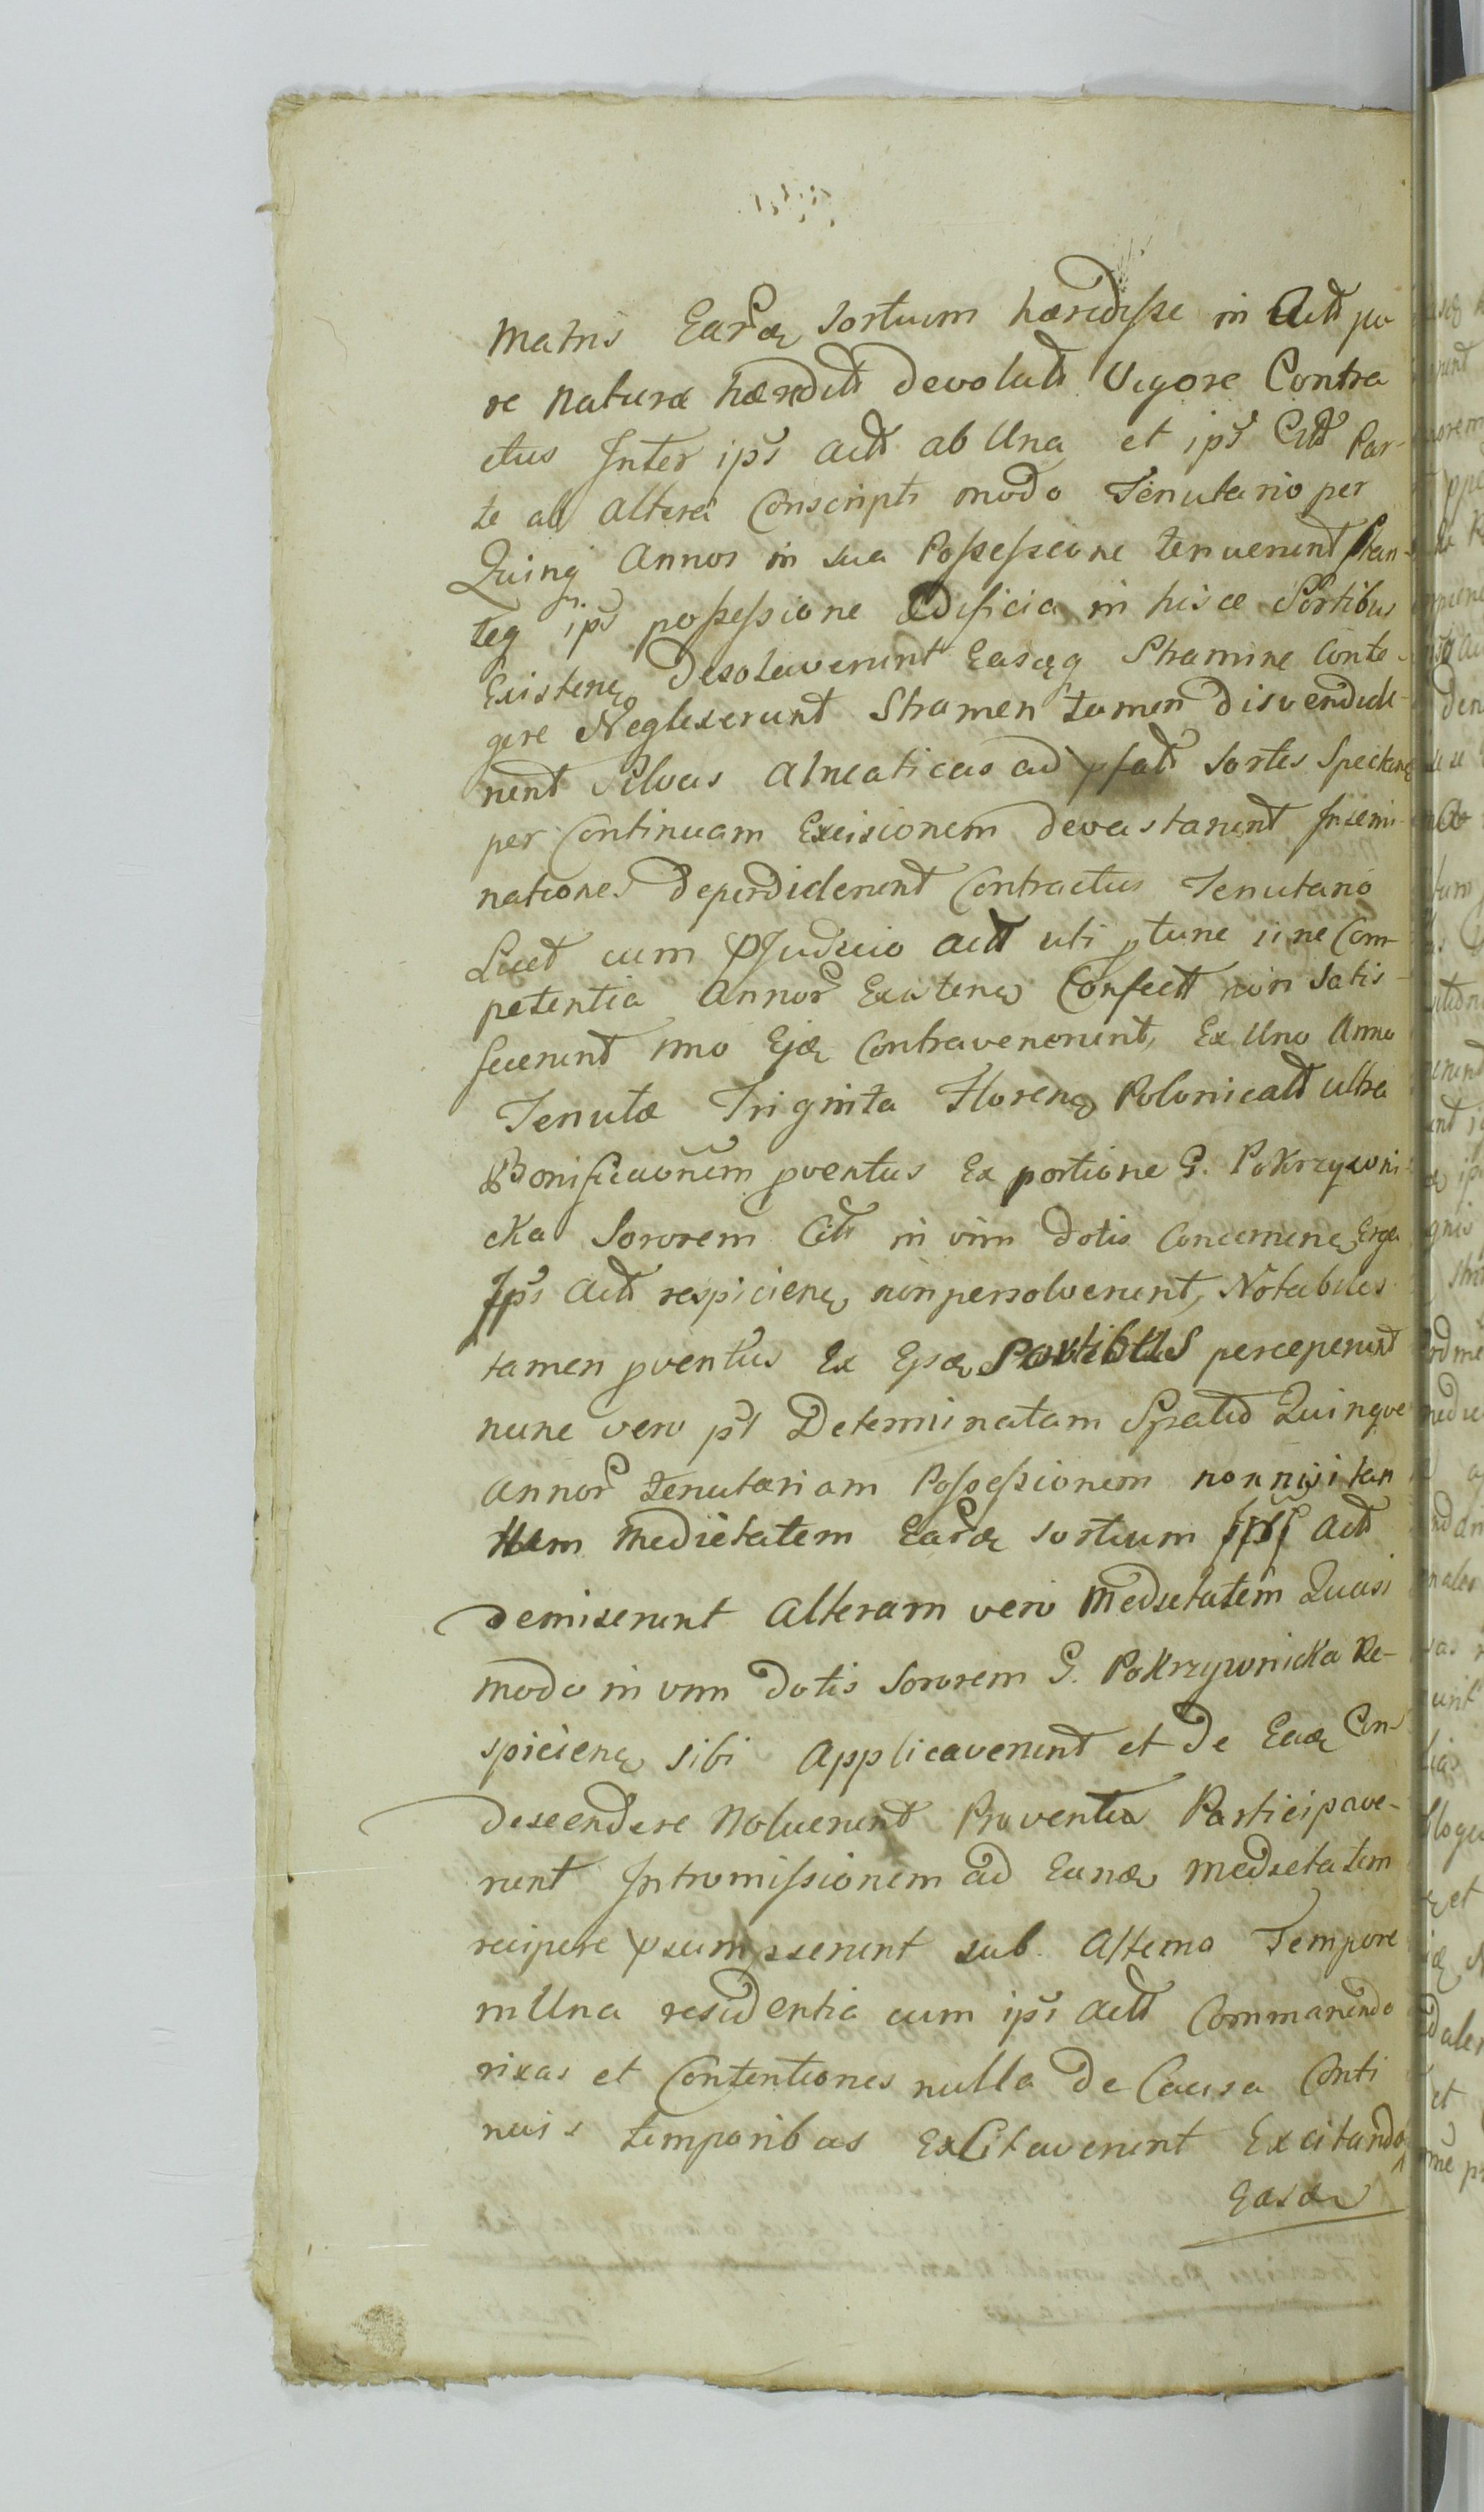 Matris Earꝗ sortium hæredisse in Actt pu
re naturæ hærditt devolutt Vigore Contra
ctus Inter ips actt ab Una et ips Citt Par-
te ab Altera Conscripti modo Tenutario per
Quinq annos in sua Possessione tenuerunt stan-
teq ips possessione Ædificia in hisce Sortibus
Existenꝗ desolaverunt Easqꝗ Stramine Conte-
gere Neglexerunt Stramen tamen disvendide-
runt Silvas Alneaticas ad pfatt sortes Spectanꝗ
per Continuam Excisionem devastarunt Insemi-
nationes deperdiderunt Contractui Tenutario
Licet cum Pjudicio actt uti p tunc sine Com-
petentia Annor Existenꝗ Confectt non satis-
fecerunt imo Ejꝗ Contravenerunt, Ex Uno Anno
Tenutæ Triginta Florenꝗ Polonicatt ultra
Bonificaonem pventus Ex portione G. Pokrzywni
cka Sororem Citt in vim dotis Concernenꝗ Erga
Ips Actt respicienꝗ non persolverunt, Notabiles
tamen pventus Ex Ejsꝗ Sortibus perceperunt
nunc vero pt Determinatam Spatio Quinque
Annor tenutariam Possessionem nonnisi tan
tum Medietatem Earꝗ sortium ips Actt
demiserunt Alteram vero Medietatem Quasi
modo in vim dotis Sororem G. Pokrzywnicka Re-
spicienꝗ sibi Applicaverunt et de Eaꝗ Con-
descendere Noluerunt Proventus Participave-
runt Intromissionem ad Eanꝗ Medietatem
recipere psumpserunt sub Alterno Tempore
in Una residentia cum ips Actt Commanendo
rixas et Contentiones nulla de Causa Conti
nuis temporibus ExCitaverunt Excitando
Easꝗ